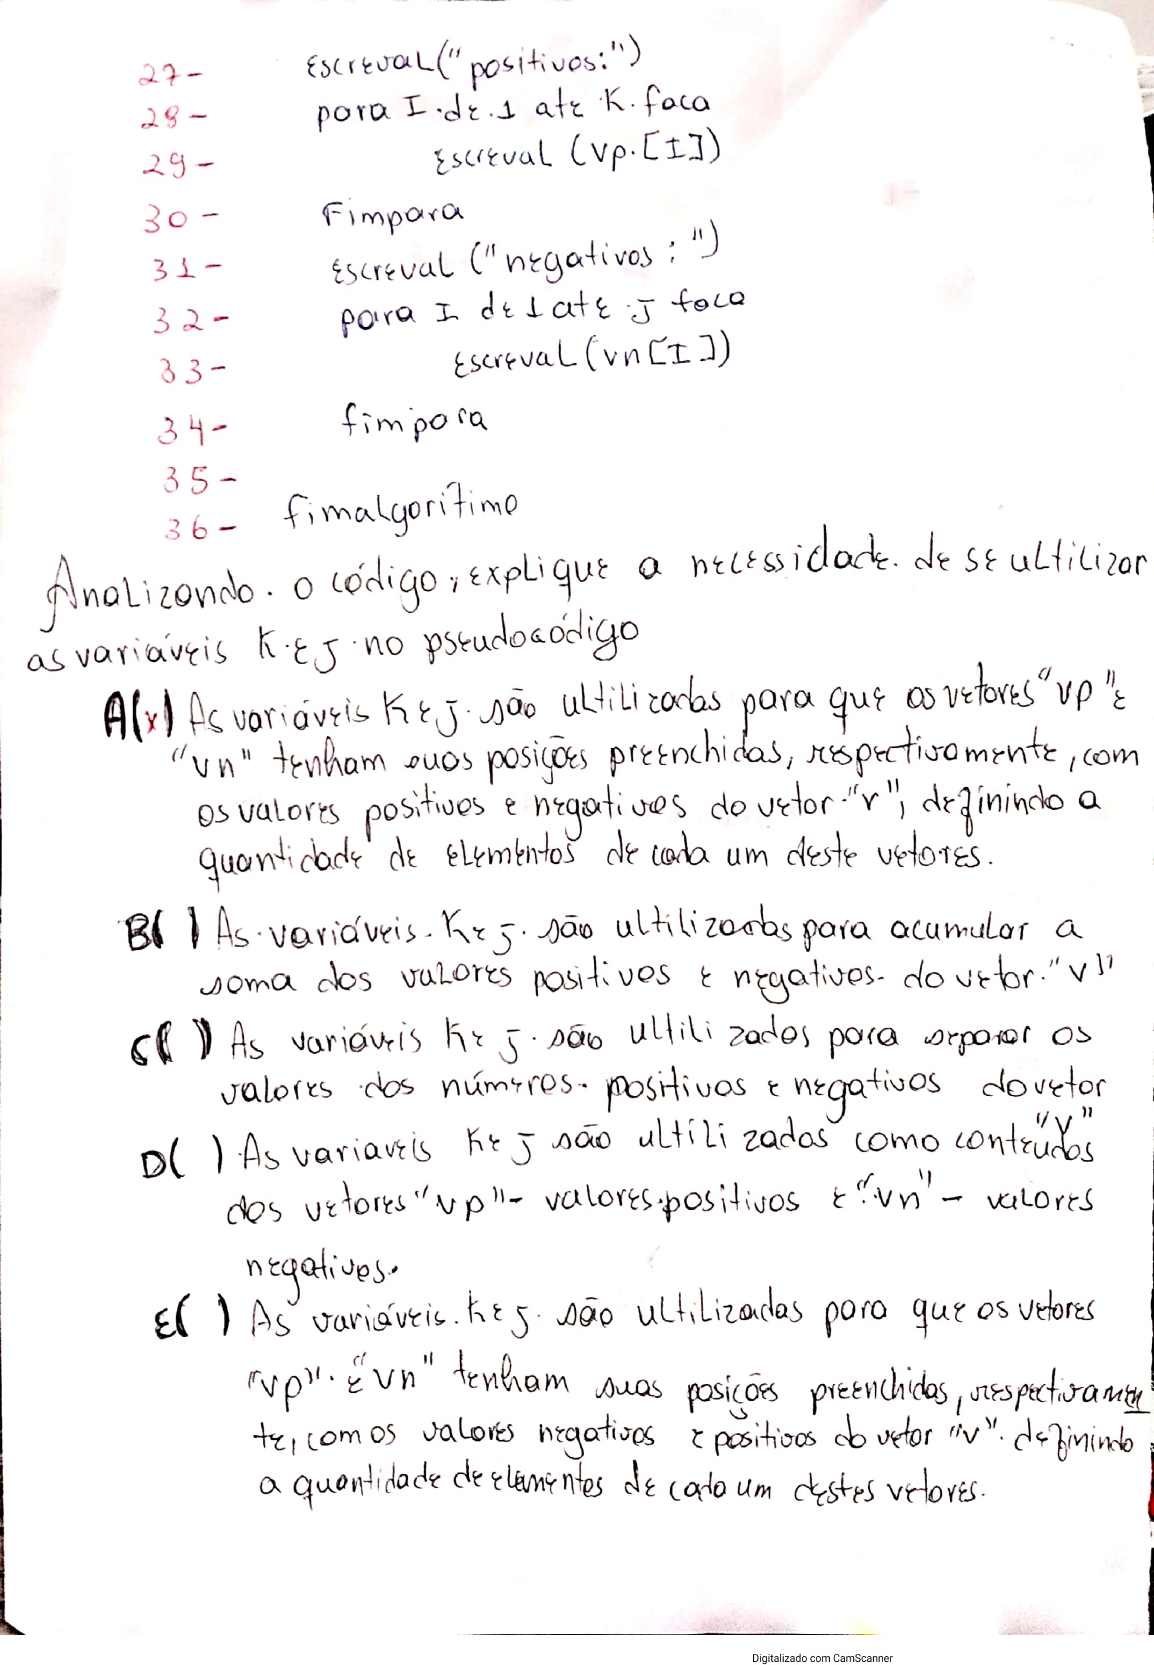 27- Escreval("positivos:")
28- para I de 1 ate K. faca
29- Escreval (vp.[I])
30- Fimpara
31- Escreval ("negativos:")
32- para I de 1 ate J faca
33- Escreval(vn[I])
34- fimpara
35-
36- fimalgorítimo
Analizando. o código, explique a necessidade. de se ultilizar
as variáveis K. E J. no pseudocódigo
A(x) As variáveis K e J. são ultilizadas para que os vetores "vp" e
"vn" tenham suas posições preenchidas, respectivamente, com
os valores positivos e negativos do vetor "v", definindo a
quantidade de elementos de cada um deste vetores.
B( ) As variáveis. K e J. são ultilizadas para acumular a
soma dos valores positivos e negativos. do vetor. "v"
C( ) As variáveis K e J. são ultilizados para separar os
valores dos números. positivos e negativos do vetor
"v"
D( ) As variaveis K e J são ultilizados como conteúdos
dos vetores "vp" - valores positivos e "vn" - valores
negativos.
E( ) As variáveis. K e J. são ultilizadas para que os vetores
"vp". e "vn" tenham suas posições preenchidas, respectivamen
te, com os valores negativos e positivos do vetor "v". definindo
a quantidade de elementos de cada um destes vetores.
Digitalizado com CamScanner